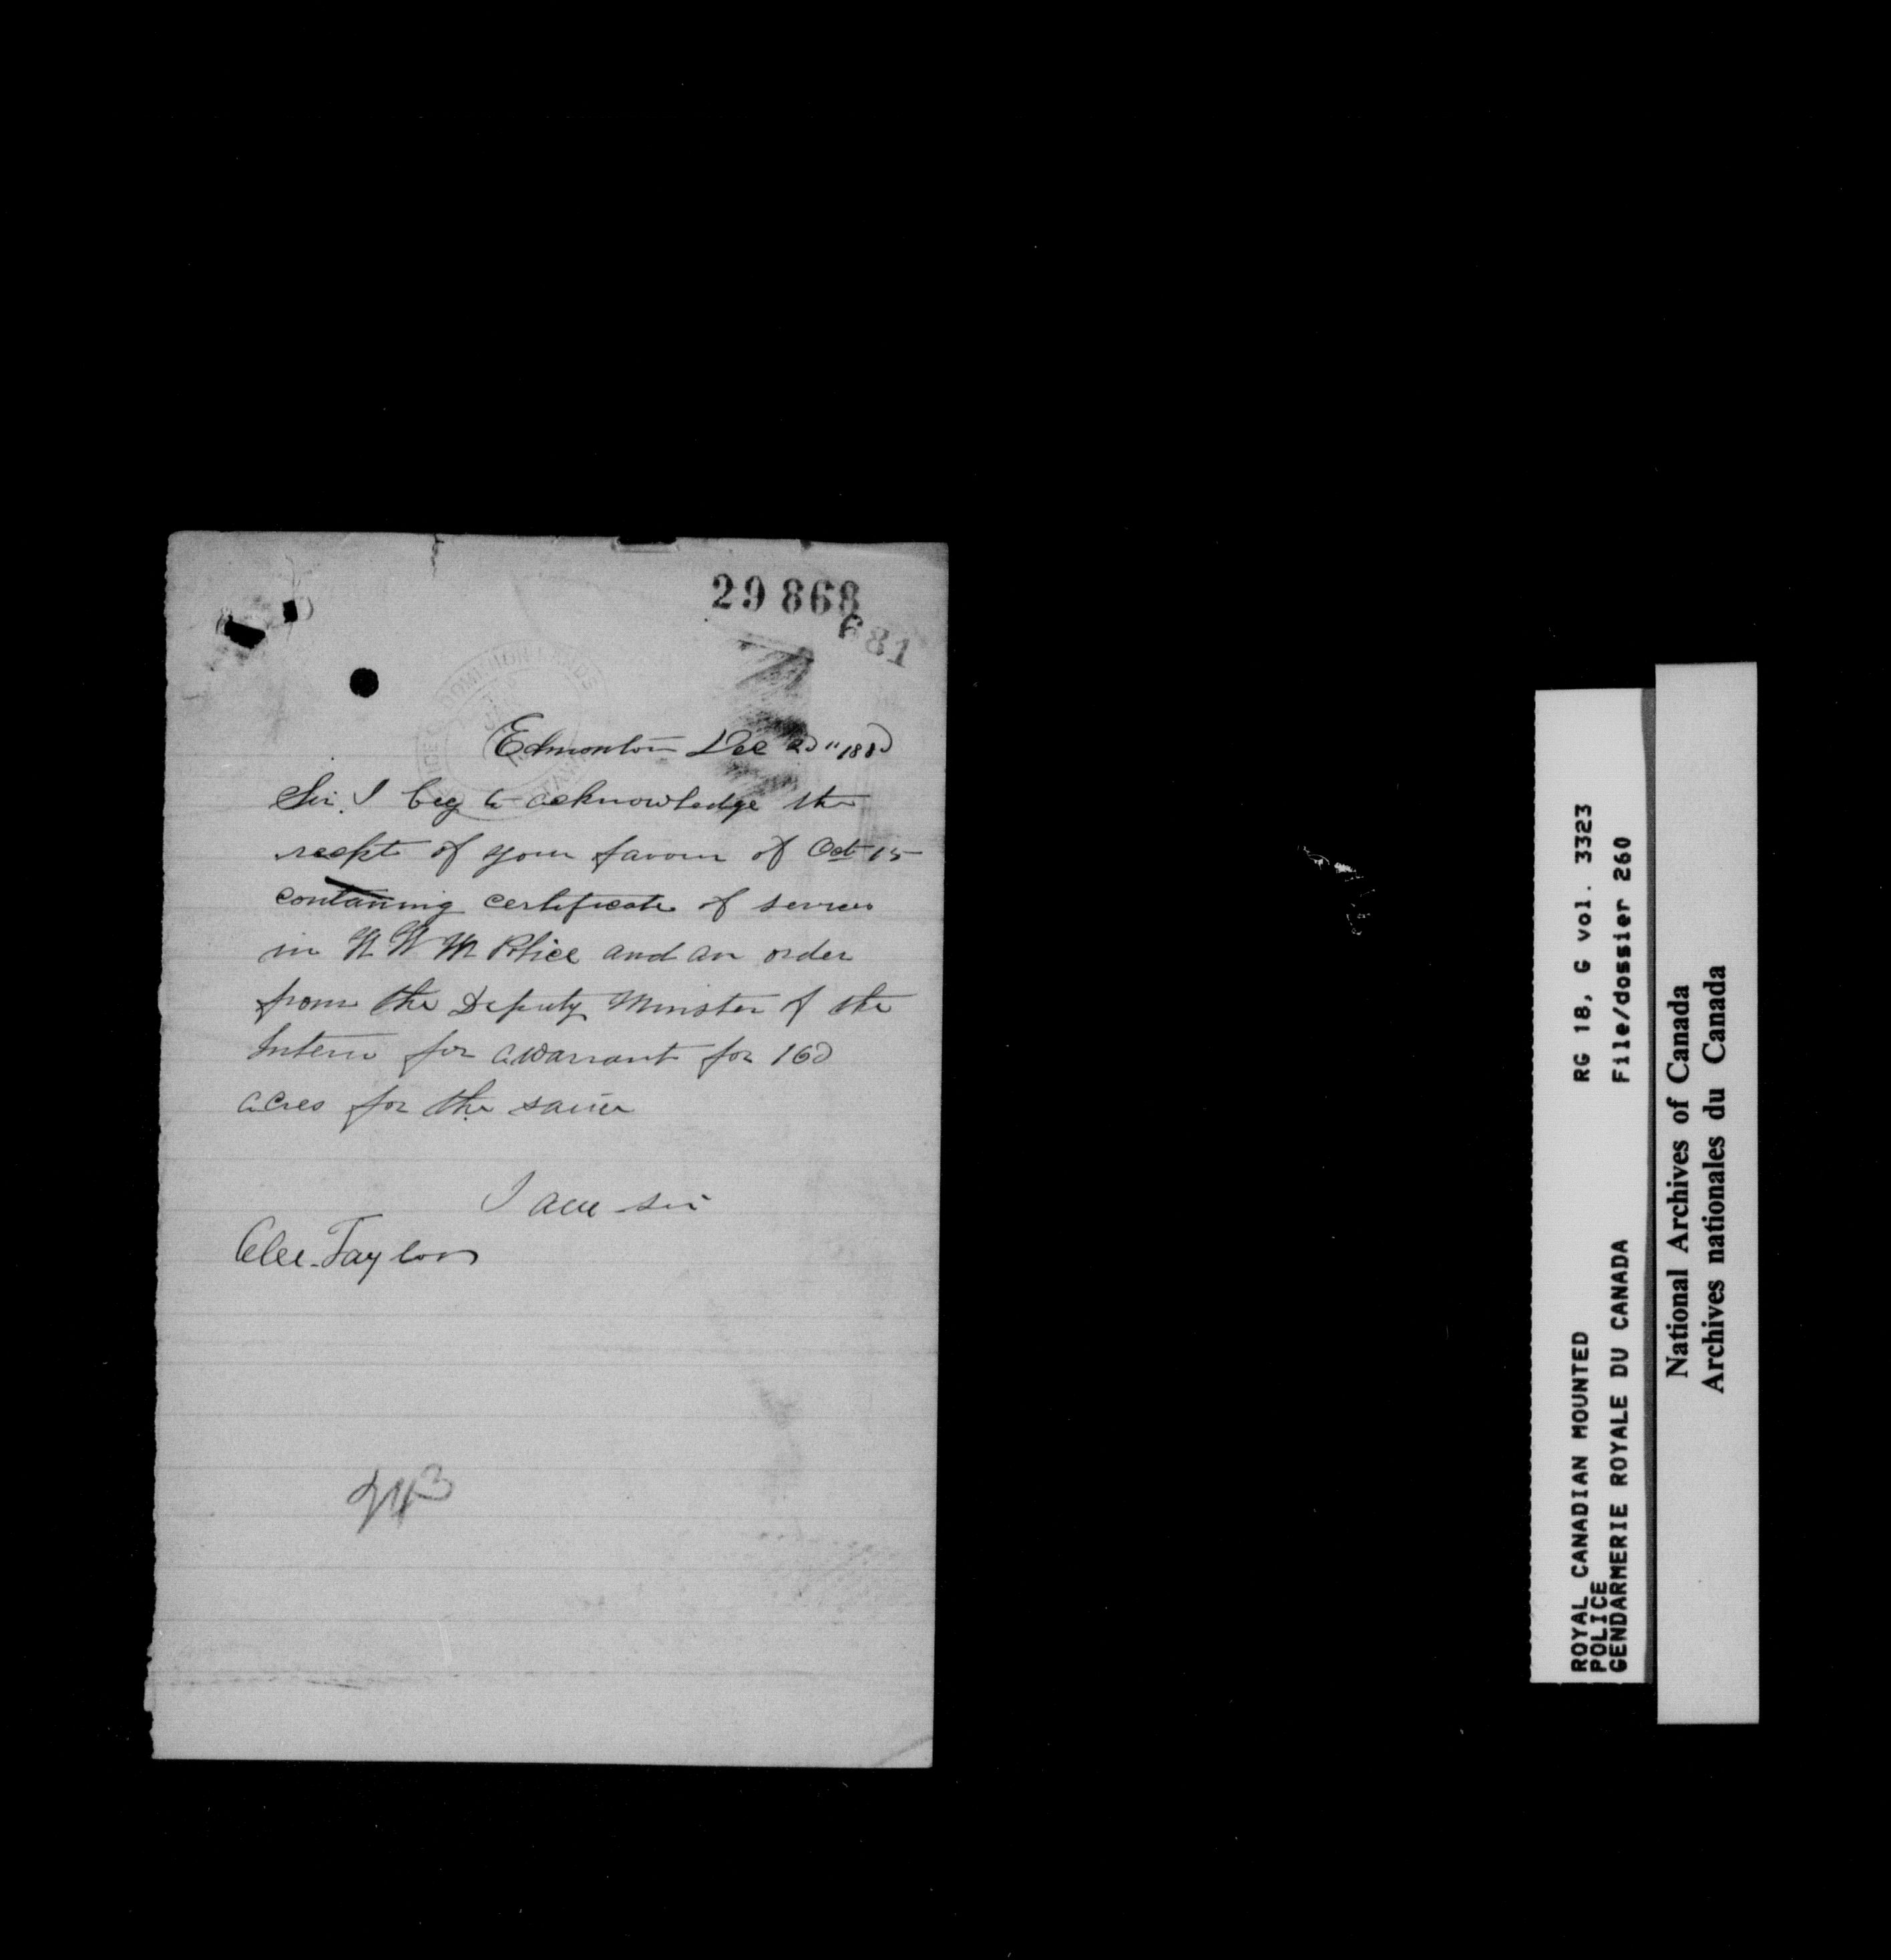 29868
681
DOMINION LANDS
Edmonton Dec 20" 1880
Sir. I beg to acknowledge the
recept of your favour of Oct 15
containing certificate of servces
in N W M Police and an order
from the Deputy Minster of the
Interir for a warrant for 160
acres for the same
I am sir
Alec. Taylor
RG 18, G vol. 3323
File/dossier 260
ROYAL CANADIAN MOUNTED
POLICE
GENDARMERIE ROYALE DU CANADA
National Archives of Canada
Archives nationales du Canada